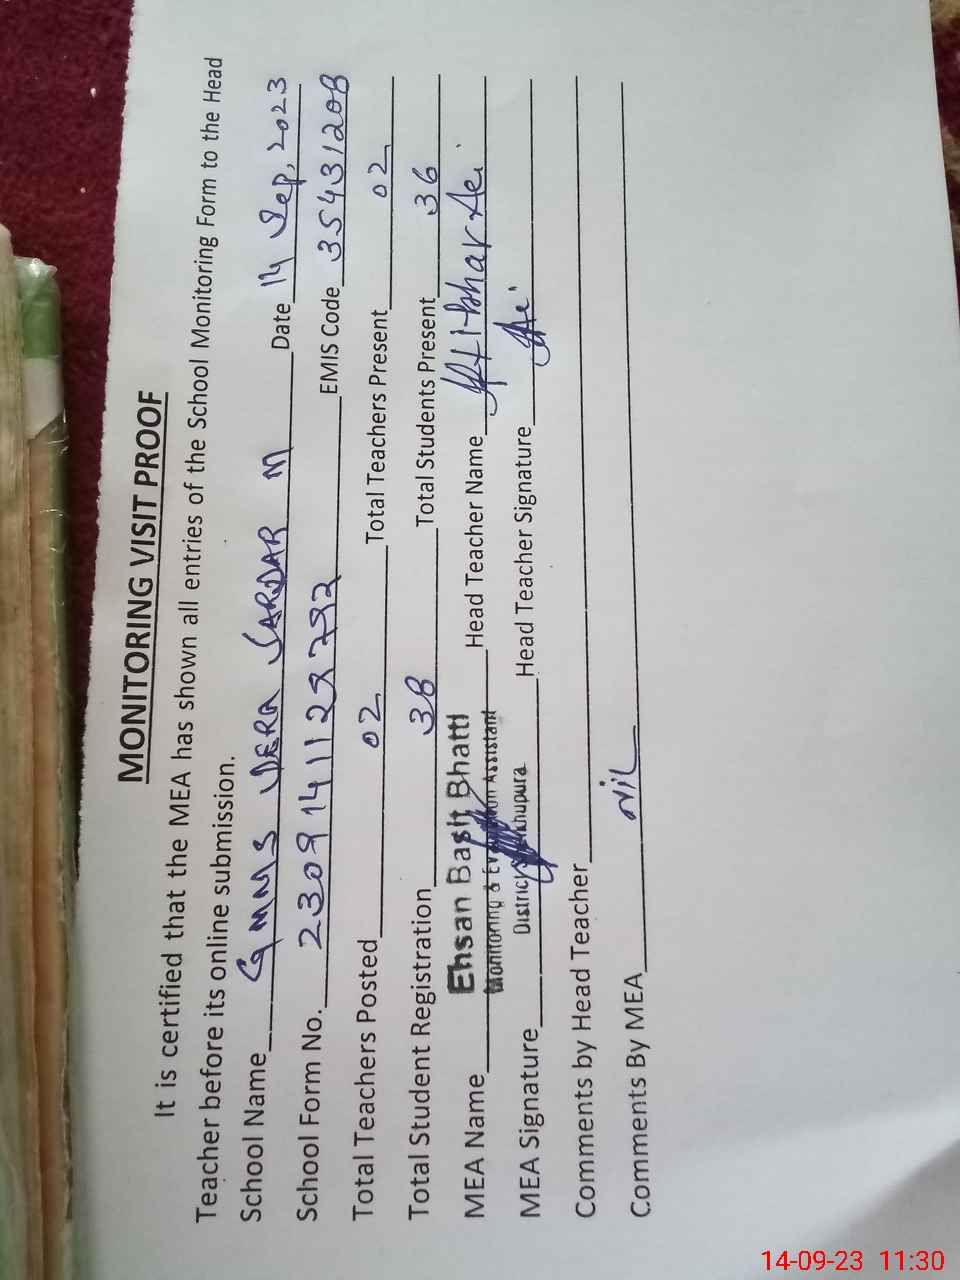 MONITORING VISIT PROOF
It is certified that the MEA has shown all entries of the School Monitoring Form to the Head
Teacher before its online submission.
School Name GMMS DERA SARDAR M Date 14 Sep, 2023
School Form No. EMIS Code 35431208
Total Teachers Posted 02 Total Teachers Present 02
Total Student Registration 38 Total Students Present 36
MEA Name Ehsan Basit Bhatti Head Teacher Name
Monitoring & Evaluation Assistant
MEA Signature District Sheikhupura Head Teacher Signature
Comments by Head Teacher
Comments By MEA Nil
14-09-23 11:30